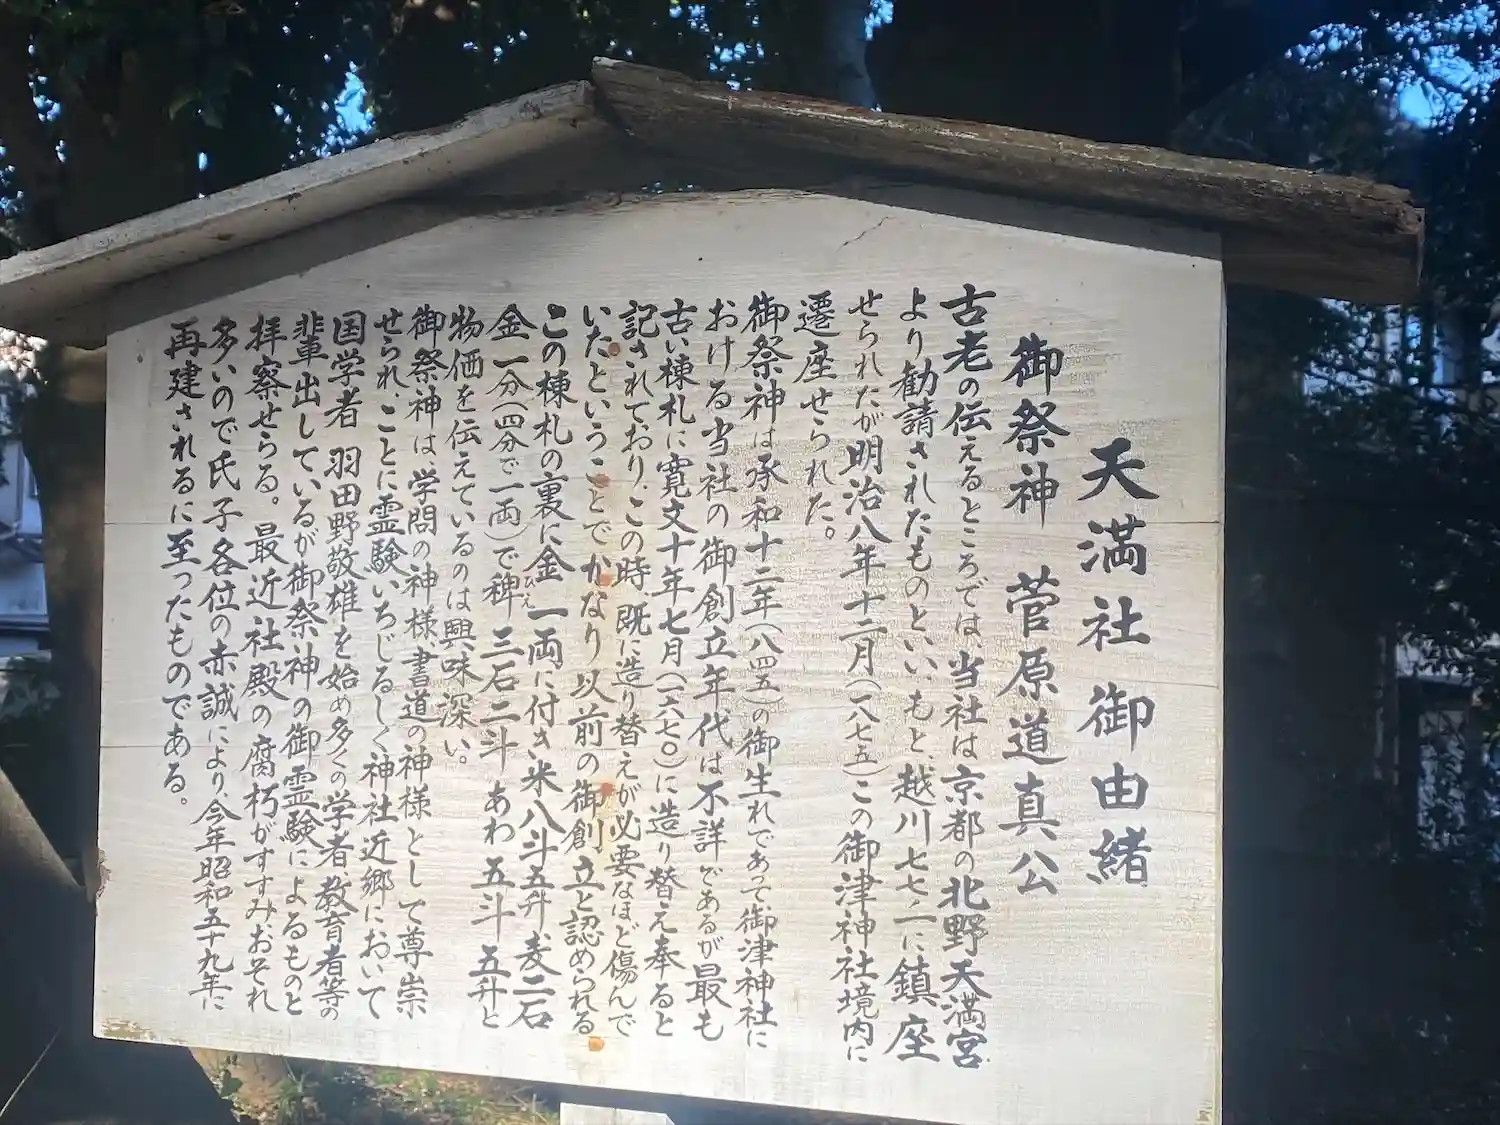 天満社 御由緒
御祭神 菅原道真公
古老の伝えるところでは、当社は京都の北野天満宮
より勧請されたものといい、もと、越川七七ノ一に鎮座
せられたが明治八年十二月(一八七五)この御津神社境内に
遷座せられた。
御祭神は承和十二年(八四五)の御生れであって、御津神社に
おける当社の御創立年代は不詳であるが最も
古い棟札に寛文十年七月(一六七〇)に造り替え奉ると
記されており、この時、既に造り替えが必要なほど傷んで
いたということでかなり以前の御創立と認められる
この棟札の裏に金一両に付き米八斗五升、麦二石
金一分(四分で一両)で稗ひえ三石二斗 あわ 五斗 五升と
物価を伝えているのは興味深い。
御祭神は学問の神様書道の神様として尊崇
せられ、ことに霊験いちじるしく神社近郷において
国学者 羽田野敬雄を始め多くの学者、教育者等の
輩出しているが御祭神の御霊験によるものと
拝察せらる。最近社殿の腐朽がすすみ、おそれ
多いので氏子各位の赤誠により、今年昭和五十九年に
再建されるに至ったものである。